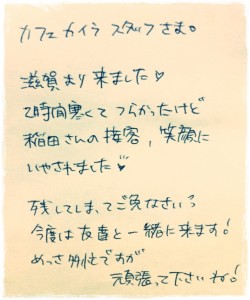 カフェ カイラ スタッフさま。
滋賀より来ました♡
2時間寒くてつらかったけど
稲田さんの接客、笑顔に
いやされました♡
残してしまってご免なさい
今度は友達と一緒に来ます!
めっさ多忙ですが
頑張って下さいね!